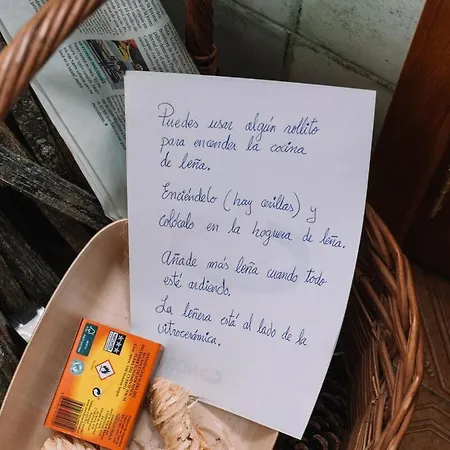 Puedes usar algún rollito
para encender la cocina
de leña.
Enciéndelo (hay cerillas) y
colócalo en la hoguera de leña.
Añade más leña cuando todo
esté ardiendo.
La leñera está al lado de la
vitrocerámica.